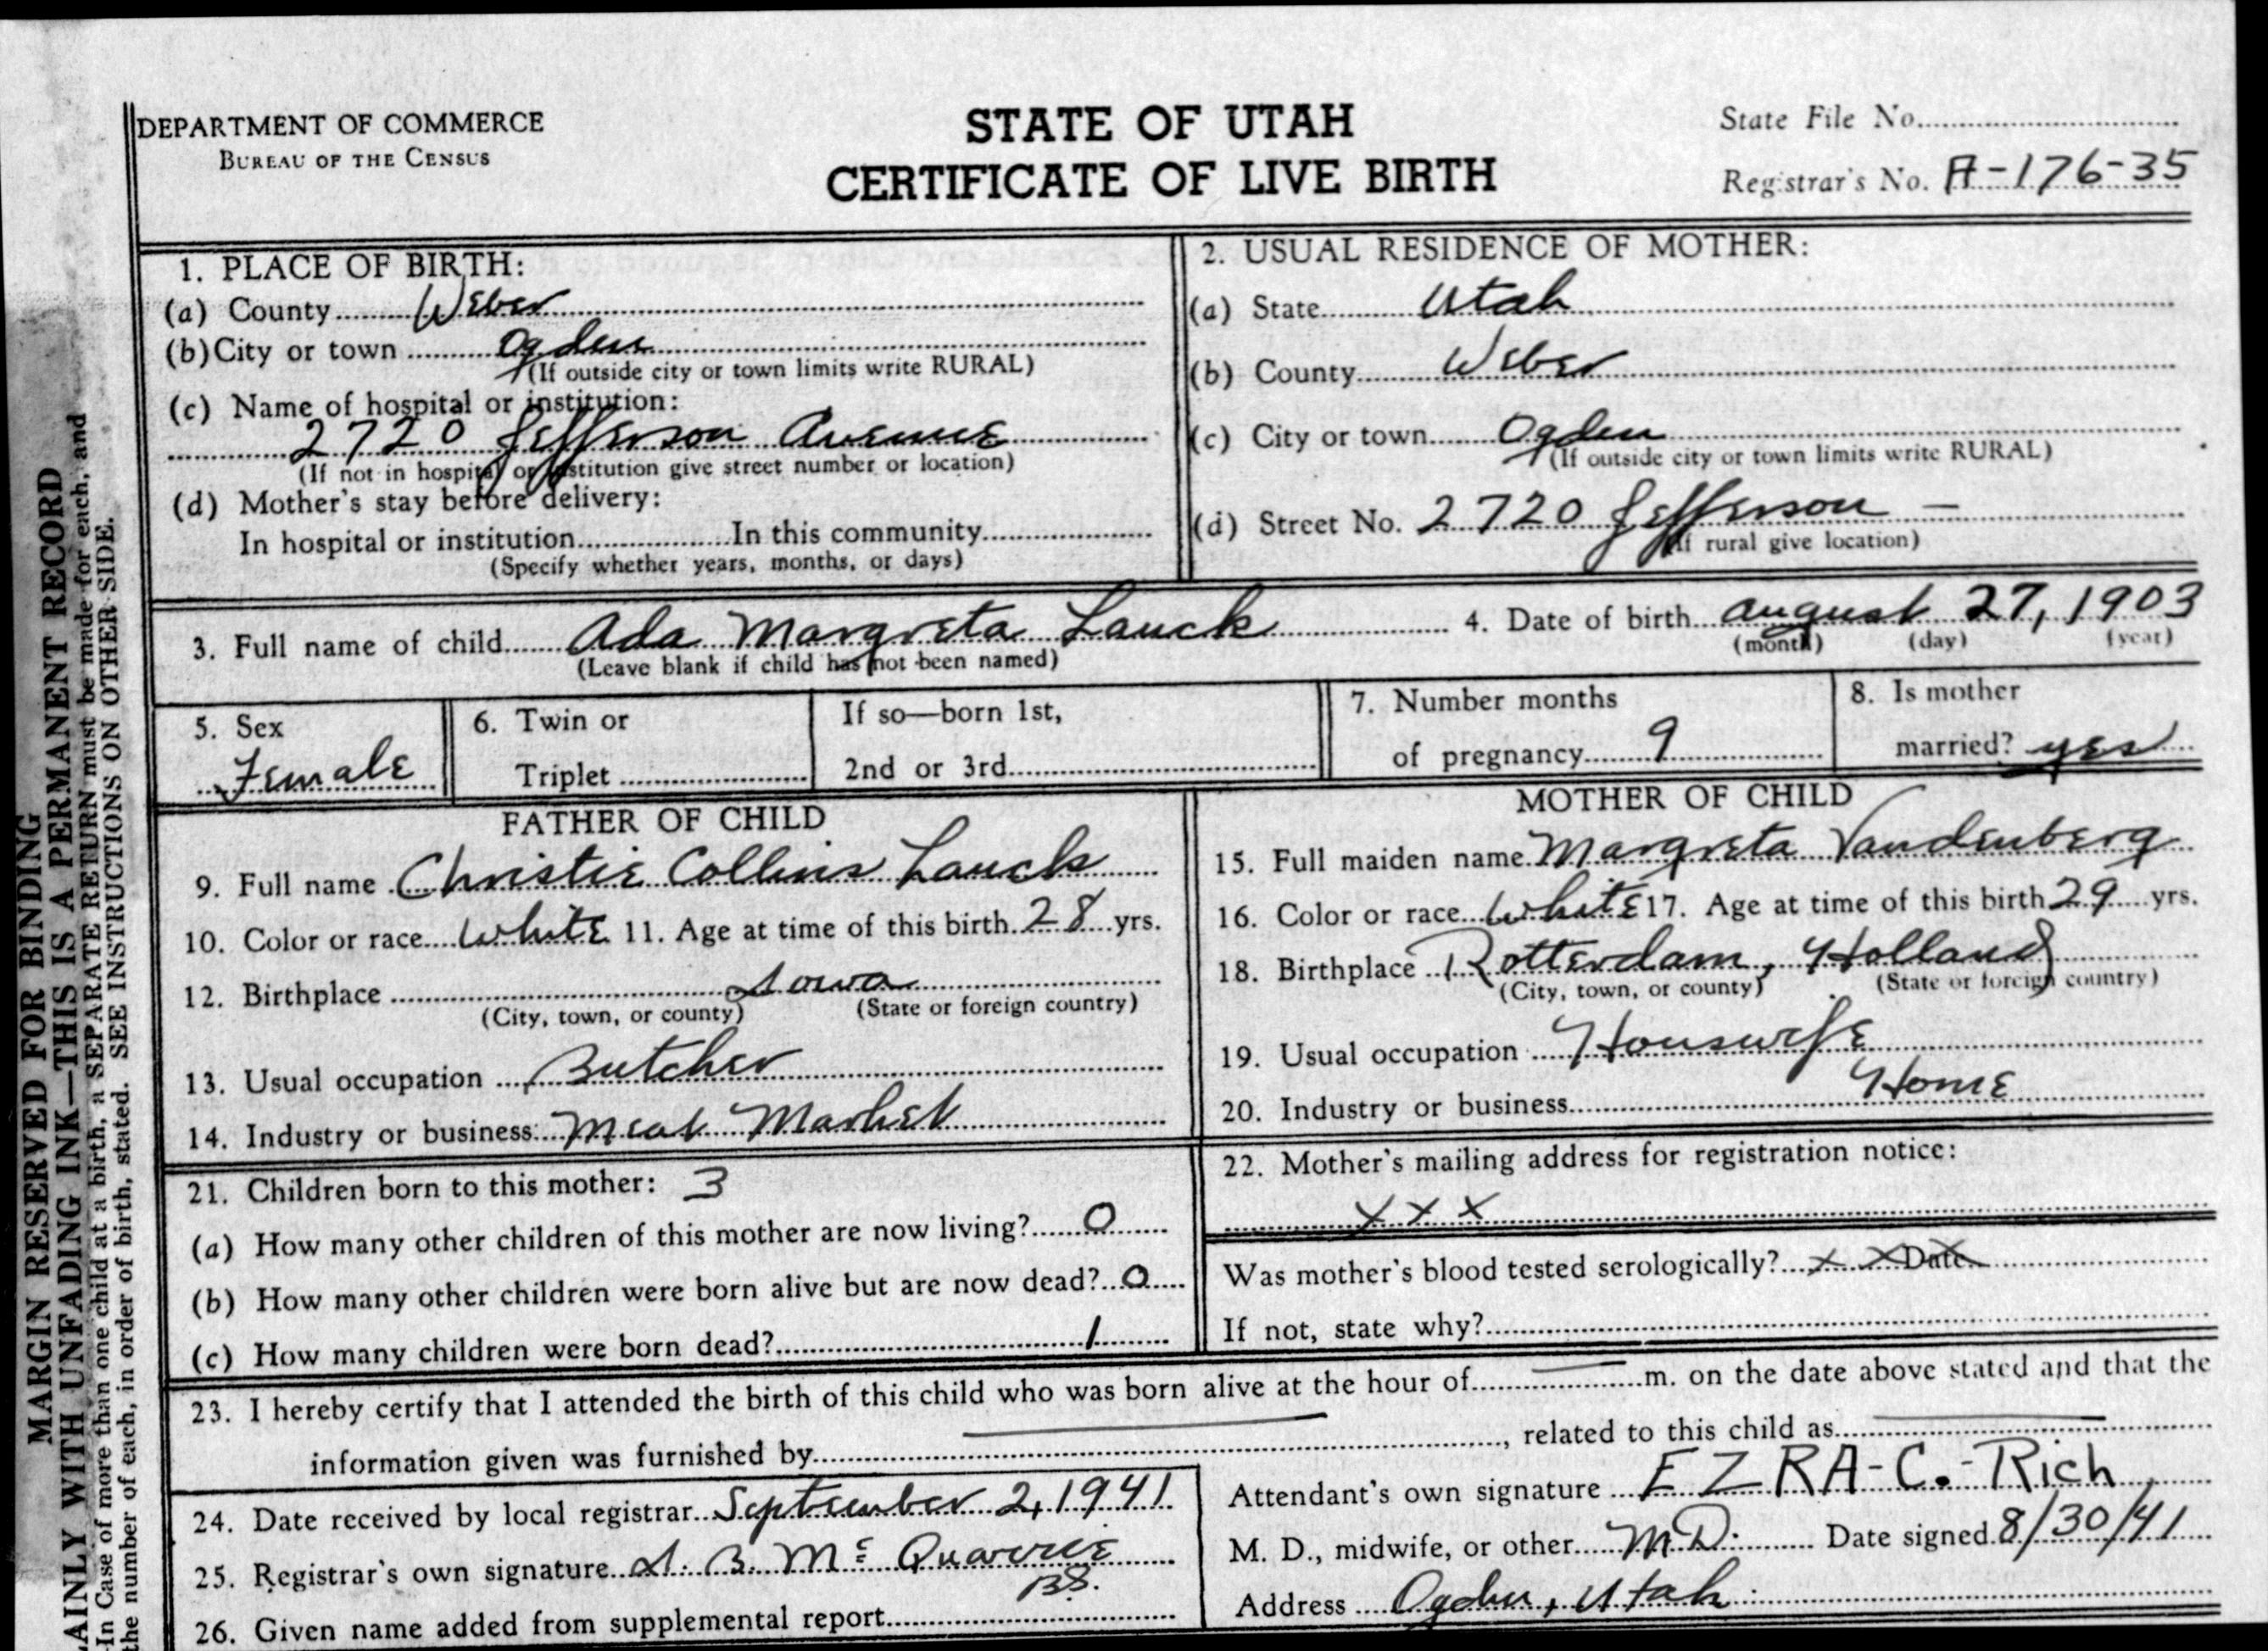 DEPARTMENT OF COMMERCE
BUREAU OF THE CENSUS
STATE OF UTAH
CERTIFICATE OF LIVE BIRTH
State File No.
Registrar's No. A-176-35
1. PLACE OF BIRTH:
(a) County Weber
(b) City or town Ogden
(If outside city or town limits write RURAL)
(c) Name of hospital or institution:
2720 Jefferson Avenue
(If not in hospital or institution give street number or location)
(d) Mother's stay before delivery:
In hospital or institution In this community
(Specify whether years, months, or days)
2. USUAL RESIDENCE OF MOTHER:
(a) State Utah
(b) County Weber
(c) City or town Ogden
(If outside city or town limits write RURAL)
(d) Street No. 2720 Jefferson —
(If rural give location)
3. Full name of child Ada Margreta Lauck
(Leave blank if child has not been named)
4. Date of birth August 27, 1903
(month) (day) (year)
5. Sex
Female
6. Twin or
Triplet
If so—born 1st,
2nd or 3rd
7. Number months
of pregnancy 9
8. Is mother
married? yes
FATHER OF CHILD
9. Full name Christie Collins Lauck
10. Color or race White 11. Age at time of this birth 28 yrs.
12. Birthplace Iowa
(City, town, or county) (State or foreign country)
13. Usual occupation Butcher
14. Industry or business Meat Market
MOTHER OF CHILD
15. Full maiden name Margreta Vandenberg
16. Color or race White 17. Age at time of this birth 29 yrs.
18. Birthplace Rotterdam, Holland
(City, town, or county) (State or foreign country)
19. Usual occupation Houswife
20. Industry or business Home
21. Children born to this mother: 3
(a) How many other children of this mother are now living? 0
(b) How many other children were born alive but are now dead? 0
(c) How many children were born dead? 1
22. Mother's mailing address for registration notice:
X X X
Was mother's blood tested serologically? X X Date X
If not, state why?
23. I hereby certify that I attended the birth of this child who was born alive at the hour of — m. on the date above stated and that the
information given was furnished by —, related to this child as —
24. Date received by local registrar September 2, 1941
25. Registrar's own signature L. B. McQuarrie
BS.
26. Given name added from supplemental report
Attendant's own signature EZRA-C.-Rich
M. D., midwife, or other M.D. Date signed 8/30/41
Address Ogden, Utah
MARGIN RESERVED FOR BINDING
AINLY WITH UNFADING INK—THIS IS A PERMANENT RECORD
In Case of more than one child at a birth, a SEPARATE RETURN must be made for each, and
the number of each, in order of birth, stated. SEE INSTRUCTIONS ON OTHER SIDE.